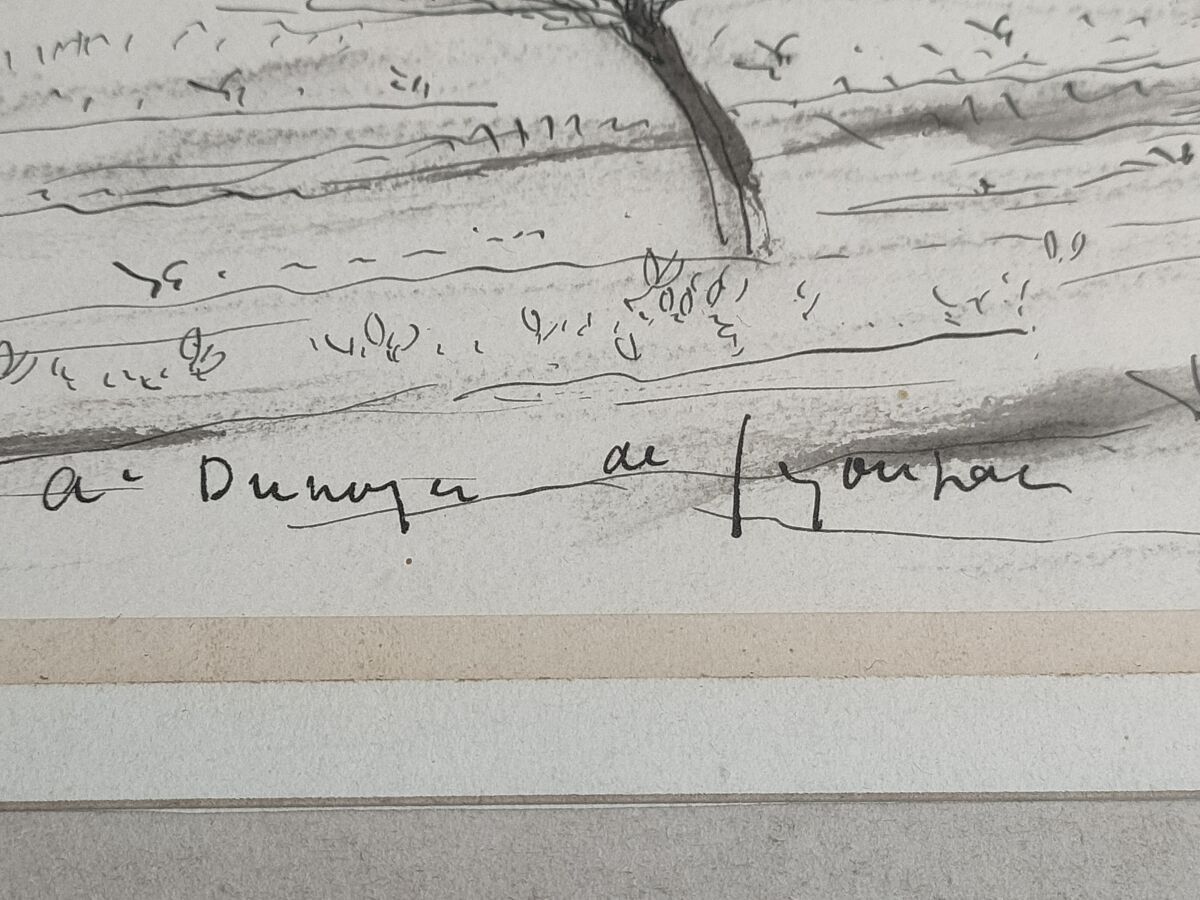 a. Dunoyer de Segonzac